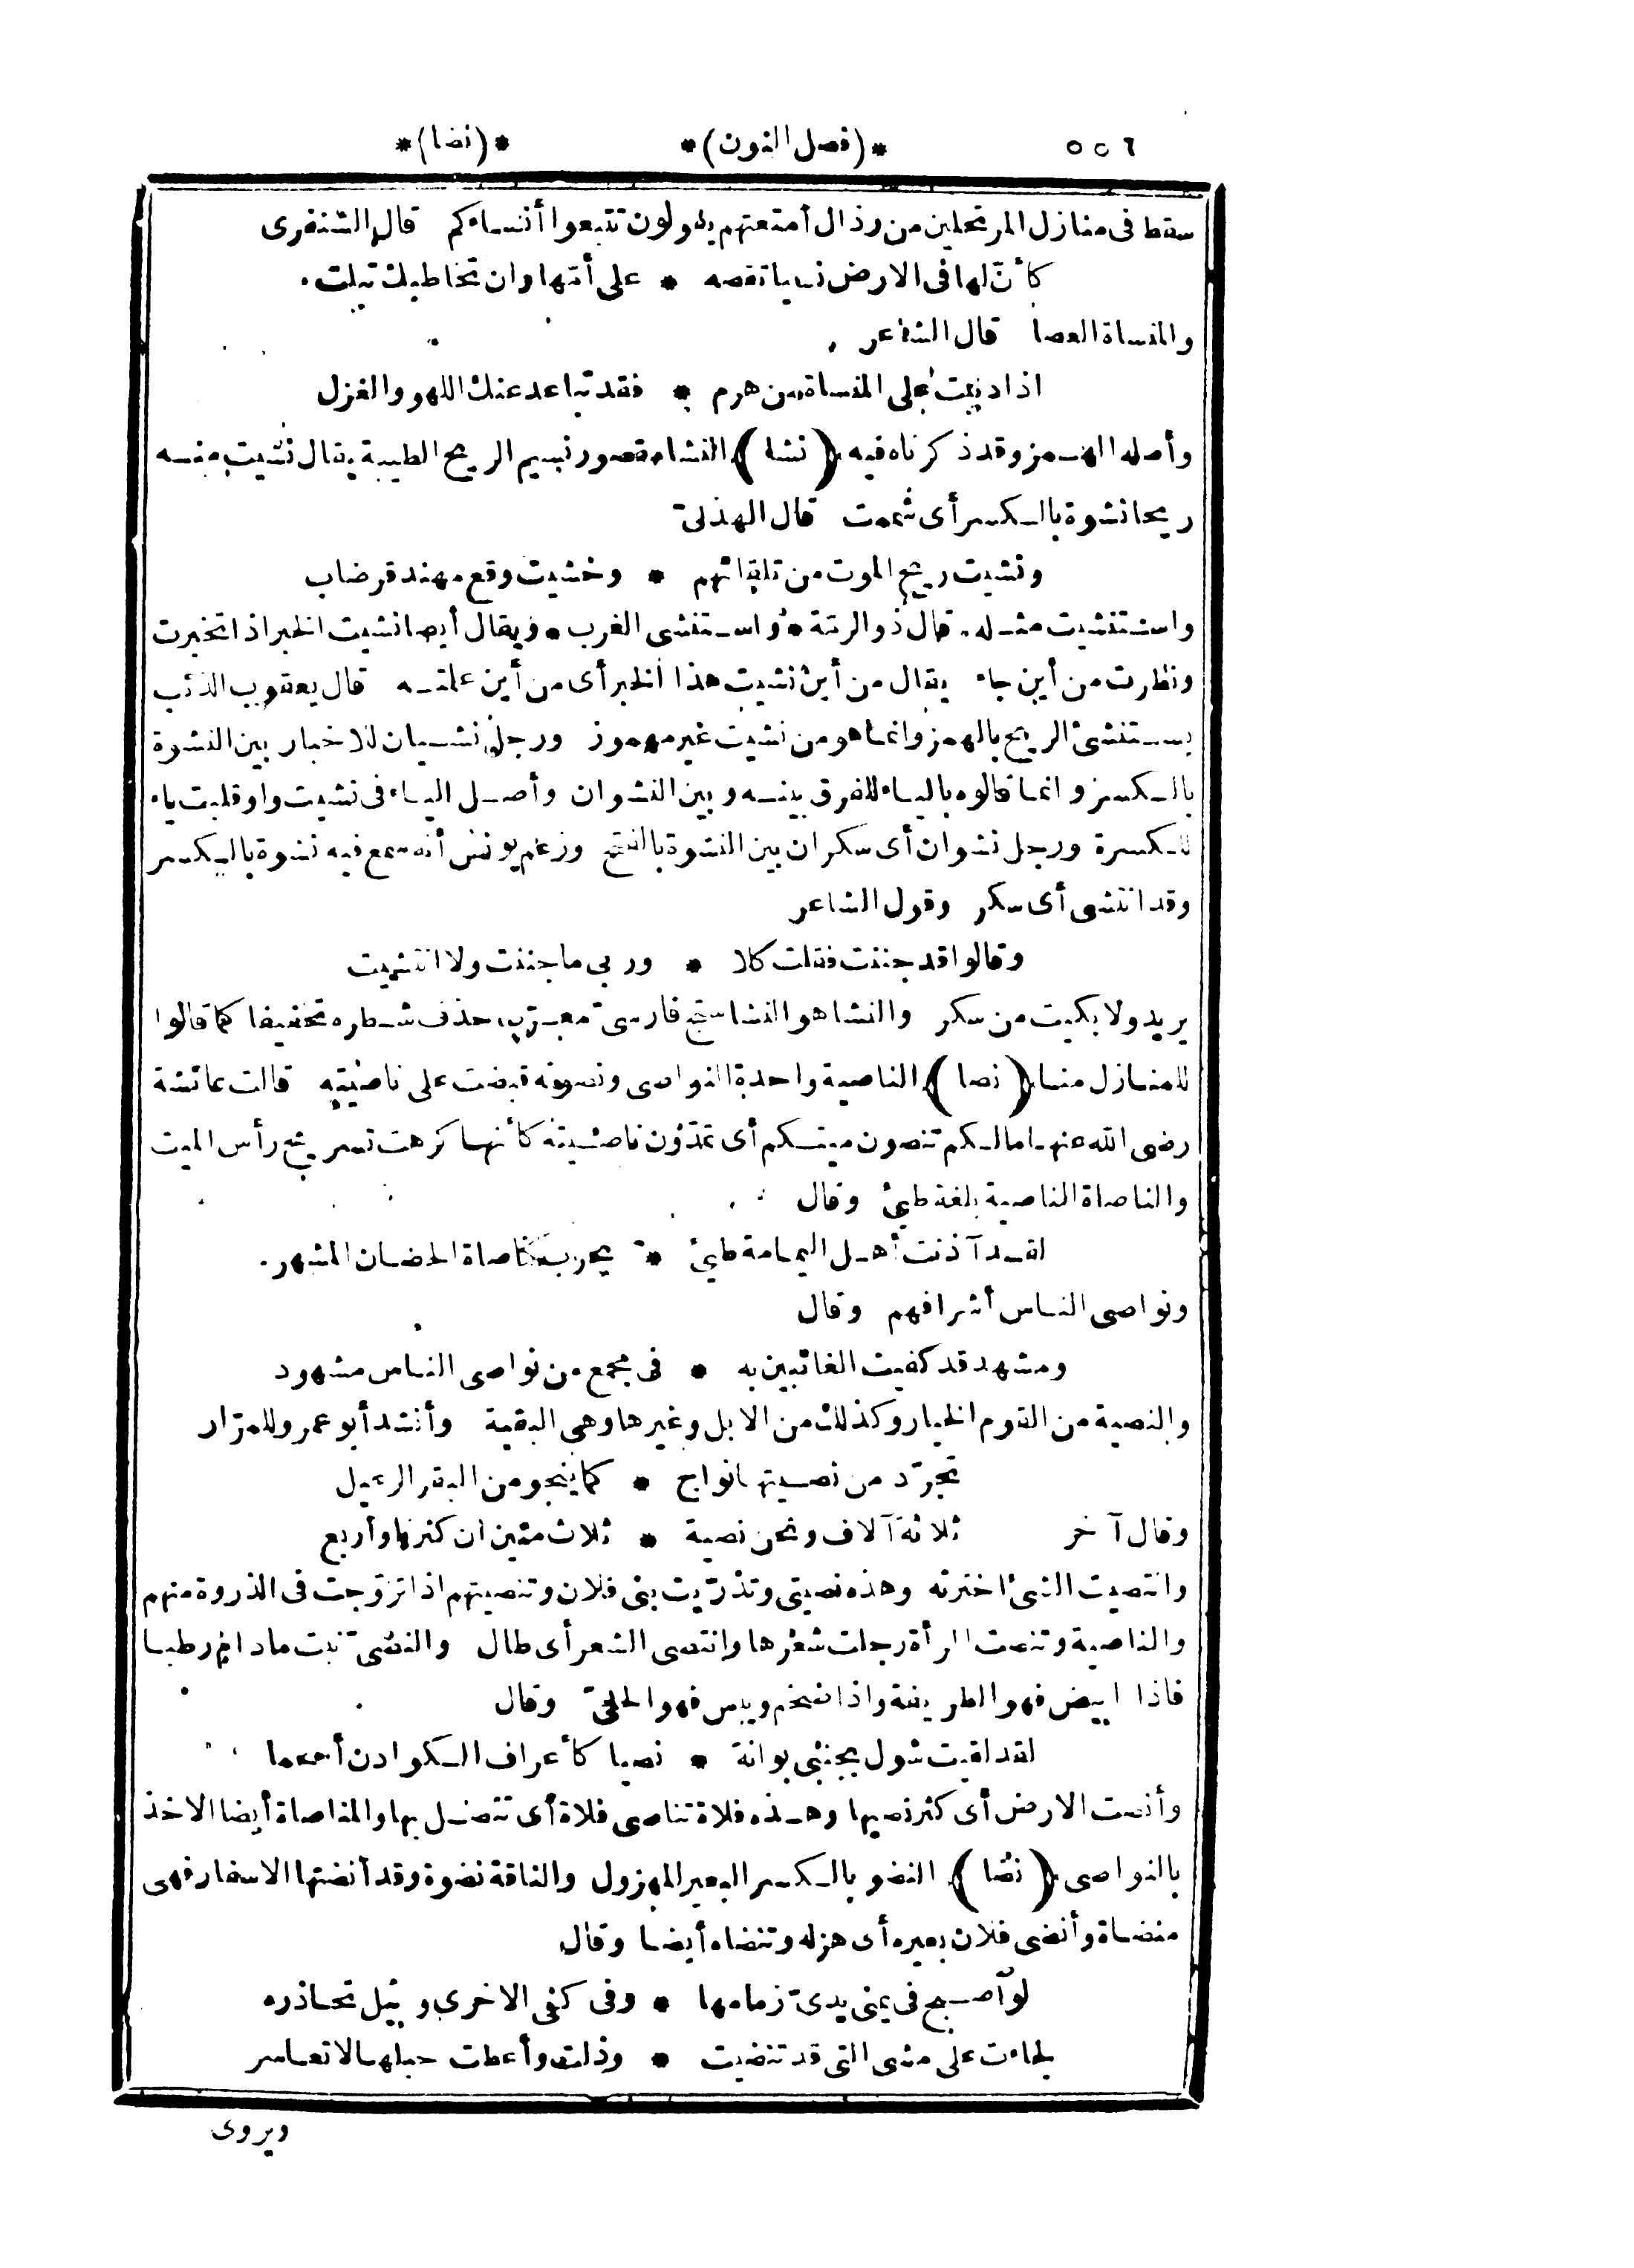 ٥٥٦ *(فصل النون)* *(نضا)*
سقط فى منازل المرتحلين من رذال أمتعتهم يقولون تتبعوا أنساءكم قال الشنفرى
كأنّ لها فى الارض نسيا تقصه * على أمّها وان تخاطبك تبلت
والمنساة العصا قال الشاعر
اذا دببت على المنساة من هرم * فقد تباعد عنك اللهو والغزل
وأصله الهمز وقد ذكرناه فيه (نشا) النشا مقصور نسيم الريح الطيبة يقال نشيت منه
ريحا نشوة بالكسر أى شممت قال الهذلىّ
ونشيت ريح الموت من تلقائهم * وخشيت وقع مهند قرضاب
واستنشيت مثله قال ذو الرمّة * واستنشى الغرب * ويقال أيضا نشيت الخبر اذا تخبرت
ونظرت من أين جاء يقال من أين نشيت هذا الخبر أى من أين علمته قال يعقوب الذئب
يستنشئ الريح بالهمز وانما هو من نشيت غير مهموز ورجل نشيان للاخبار بين النشوة
بالكسر وانما قالوه بالياء للفرق بينه وبين النشوان وأصل الياء فى نشيت واو قلبت ياء
للكسرة ورجل نشوان أى سكران بين النشوة بالفتح وزعم يونس أنه سمع فيه نشوة بالكسر
وقد انتشى أى سكر وقول الشاعر
وقالوا قد جننت فقلت كلا * وربى ما جننت ولا انتشيت
يريد ولا بكيت من سكر والنشا هو النشاستج فارسىّ معرّب حذف شطره تخفيفا كما قالوا
للمنازل منا (نصا) الناصية واحدة النواصى ونصوته قبضت على ناصيته قالت عائشة
رضى الله عنها مالكم تنصون ميتكم أى تمدّون ناصيته كأنها كرهت تسريح رأس الميت
والناصاة الناصية بلغة طيئ وقال
لقد آذنت أهل اليمامة طيئ * بحرب كناصاة الحصان المشهر
ونواصى الناس أشرافهم وقال
ومشهد قد كفيت الغائبين به * فى مجمع من نواصى الناس مشهود
والنصية من القوم الخيار وكذلك من الابل وغيرها وهى البقية وأنشد أبو عمرو للمرّار
تجرّد من نصيتها نواج * كما ينجو من البقر الرعيل
وقال آخر ثلاثة آلاف ونحن نصية * ثلاث مئين ان كثرنا وأربع
وانتصيت الشئ اخترته وهذه نصيتى وتذرّيت بنى فلان وتنصيتهم اذا تزوّجت فى الذروة منهم
والناصية وتنصت المرأة رجلت شعرها وانتصى الشعر أى طال والنصىّ نبت مادام رطبا
فاذا ابيض فهو الطريفة واذا ضخم ويبس فهو الحلىّ وقال
لقد لقيت شول بجنبى بوانة * نصيا كأعراف الكوادن أسحما
وأنصت الارض أى كثر نصيها وهذه فلاة تناصى فلاة أى تتصل بها والمناصاة أيضا الاخذ
بالنواصى (نضا) النضو بالكسر البعير المهزول والناقة نضوة وقد أنضتها الاسفار فهى
منضاة وأنضى فلان بعيره أى هزله وتنضاه أيضا وقال
لو أصبح فى يمنى يدىّ زمامها * وفى كفى الاخرى وبيل تحاذره
لجاءت على مشى التى قد تنضيت * وذلت وأعطت حبلها لا تعاسر
ويروى